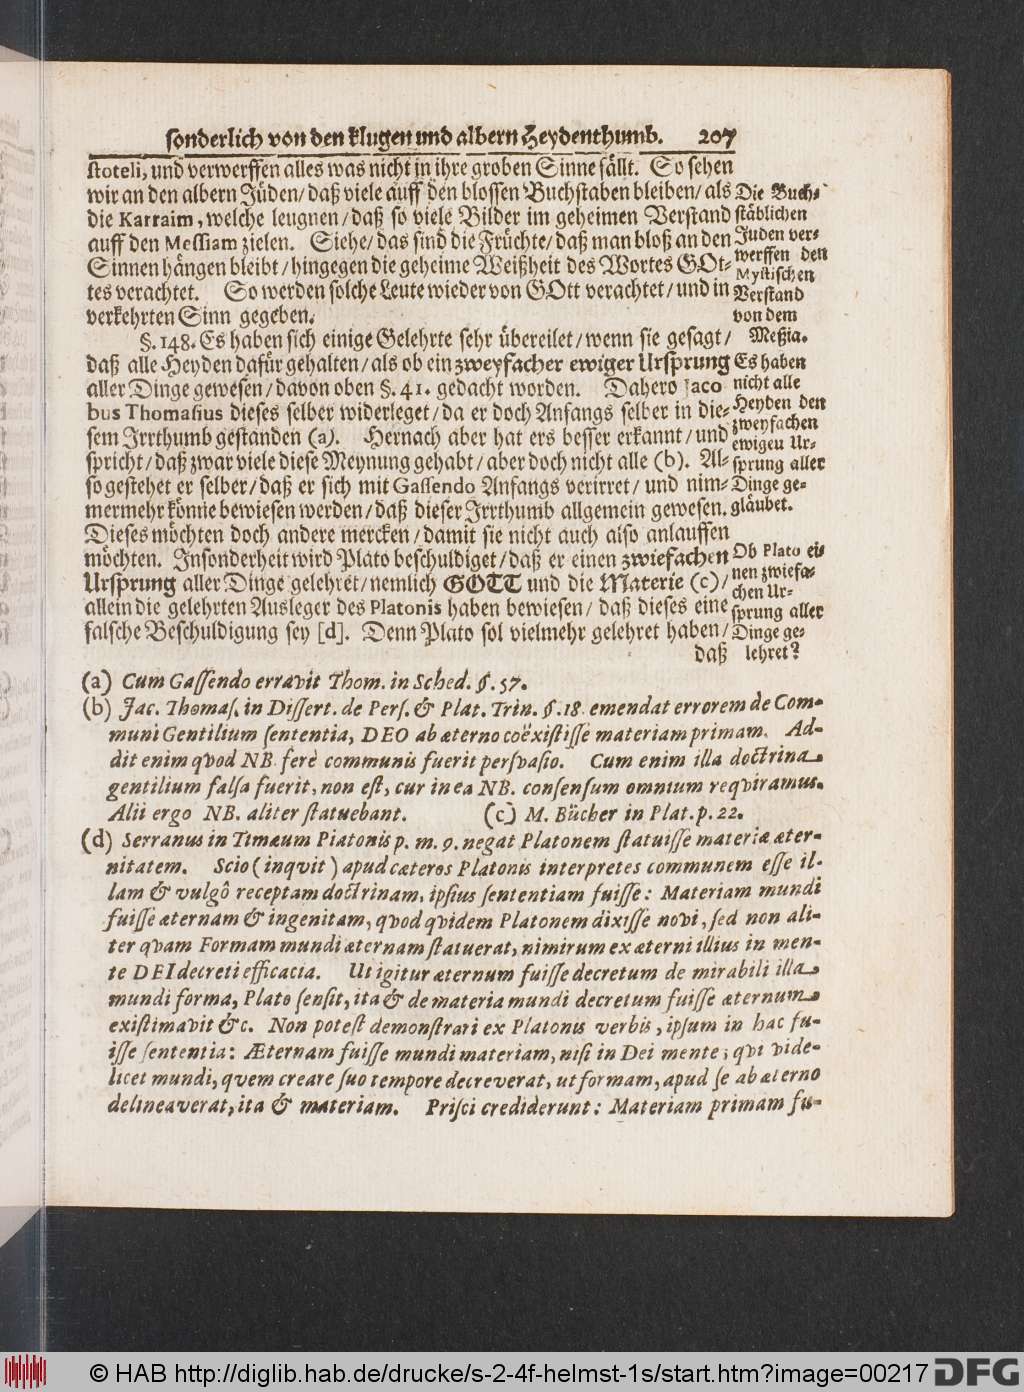 sonderlich von den klugen und albern Heydenthumb. 207
stoteli, und verwerffen alles was nicht in ihre groben Sinne fällt. So sehen
wir an den albern Jüden/ daß viele auff den blossen Buchstaben bleiben/ als
die Karraim, welche leugnen/ daß so viele Bilder im geheimen Verstand
auff den Messiam zielen. Siehe/ das sind die Früchte/ daß man bloß an den
Sinnen hängen bleibt/ hingegen die geheime Weißheit des Wortes GOt-
tes verachtet. So werden solche Leute wieder von GOtt verachtet/ und in
verkehrten Sinn gegeben.
Die Buch-
stäblichen
Juden ver-
werffen den
Mystischen
Verstand
von dem
Meßia.
§. 148. Es haben sich einige Gelehrte sehr übereilet/ wenn sie gesagt/
daß alle Heyden dafür gehalten/ als ob ein zweyfacher ewiger Ursprung
aller Dinge gewesen/ davon oben §. 41. gedacht worden. Dahero Jaco
bus Thomasius dieses selber widerleget/ da er doch Anfangs selber in die-
sem Irrthumb gestanden (a). Hernach aber hat ers besser erkannt/ und
spricht/ daß zwar viele diese Meynung gehabt/ aber doch nicht alle (b). Al-
so gestehet er selber/ daß er sich mit Gassendo Anfangs verirret/ und nim-
mermehr könne bewiesen werden/ daß dieser Irrthumb allgemein gewesen.
Dieses möchten doch andere mercken/ damit sie nicht auch also anlauffen
möchten. Insonderheit wird Plato beschuldiget/ daß er einen zwiefachen
Ursprung aller Dinge gelehret/ nemlich GOTT und die Materie (c)/
allein die gelehrten Ausleger des Platonis haben bewiesen/ daß dieses eine
falsche Beschuldigung sey [d]. Denn Plato sol vielmehr gelehret haben/
daß
Es haben
nicht alle
Heyden den
zweyfachen
ewigen Ur-
sprung aller
Dinge ge-
gläubet.
Ob Plato ei-
nen zwiefa-
chen Ur-
sprung aller
Dinge ge-
lehret?
(a) Cum Gassendo erravit Thom. in Sched. §. 57.
(b) Jac. Thomas. in Dissert. de Pers. & Plat. Trin. §. 18 emendat errorem de Com-
muni Gentilium sententia, DEO ab æterno coëxistisse materiam primam. Ad-
dit enim qvod NB. ferè communis fuerit persvasio. Cum enim illa doctrina
gentilium falsa fuerit, non est, cur in ea NB. consensum omnium reqviramus.
Alii ergo NB. aliter statuebant. (c) M. Bücher in Plat. p. 22.
(d) Serranus in Timæum Platonis p. m. 9. negat Platonem statuisse materiæ æter-
nitatem. Scio (inqvit) apud cæteros Platonis interpretes communem esse il-
lam & vulgô receptam doctrinam, ipsius sententiam fuisse: Materiam mundi
fuisse æternam & ingenitam, qvod qvidem Platonem dixisse novi, sed non ali-
ter qvam Formam mundi æternam statuerat, nimirum ex æterni illius in men-
te DEI decreti efficacia. Ut igitur æternum fuisse decretum de mirabili illa
mundi forma, Plato sensit, ita & de materia mundi decretum fuisse æternum
existimavit &c. Non potest demonstrari ex Platonis verbis, ipsum in hac fu-
isse sententia: Æternam fuisse mundi materiam, nisi in Dei mente; qvi vide-
licet mundi, qvem creare suo tempore decreverat, ut formam, apud se ab æterno
delineaverat, ita & materiam. Prisci crediderunt: Materiam primam fu-
© HAB http://diglib.hab.de/drucke/s-2-4f-helmst-1s/start.htm?image=00217 DFG